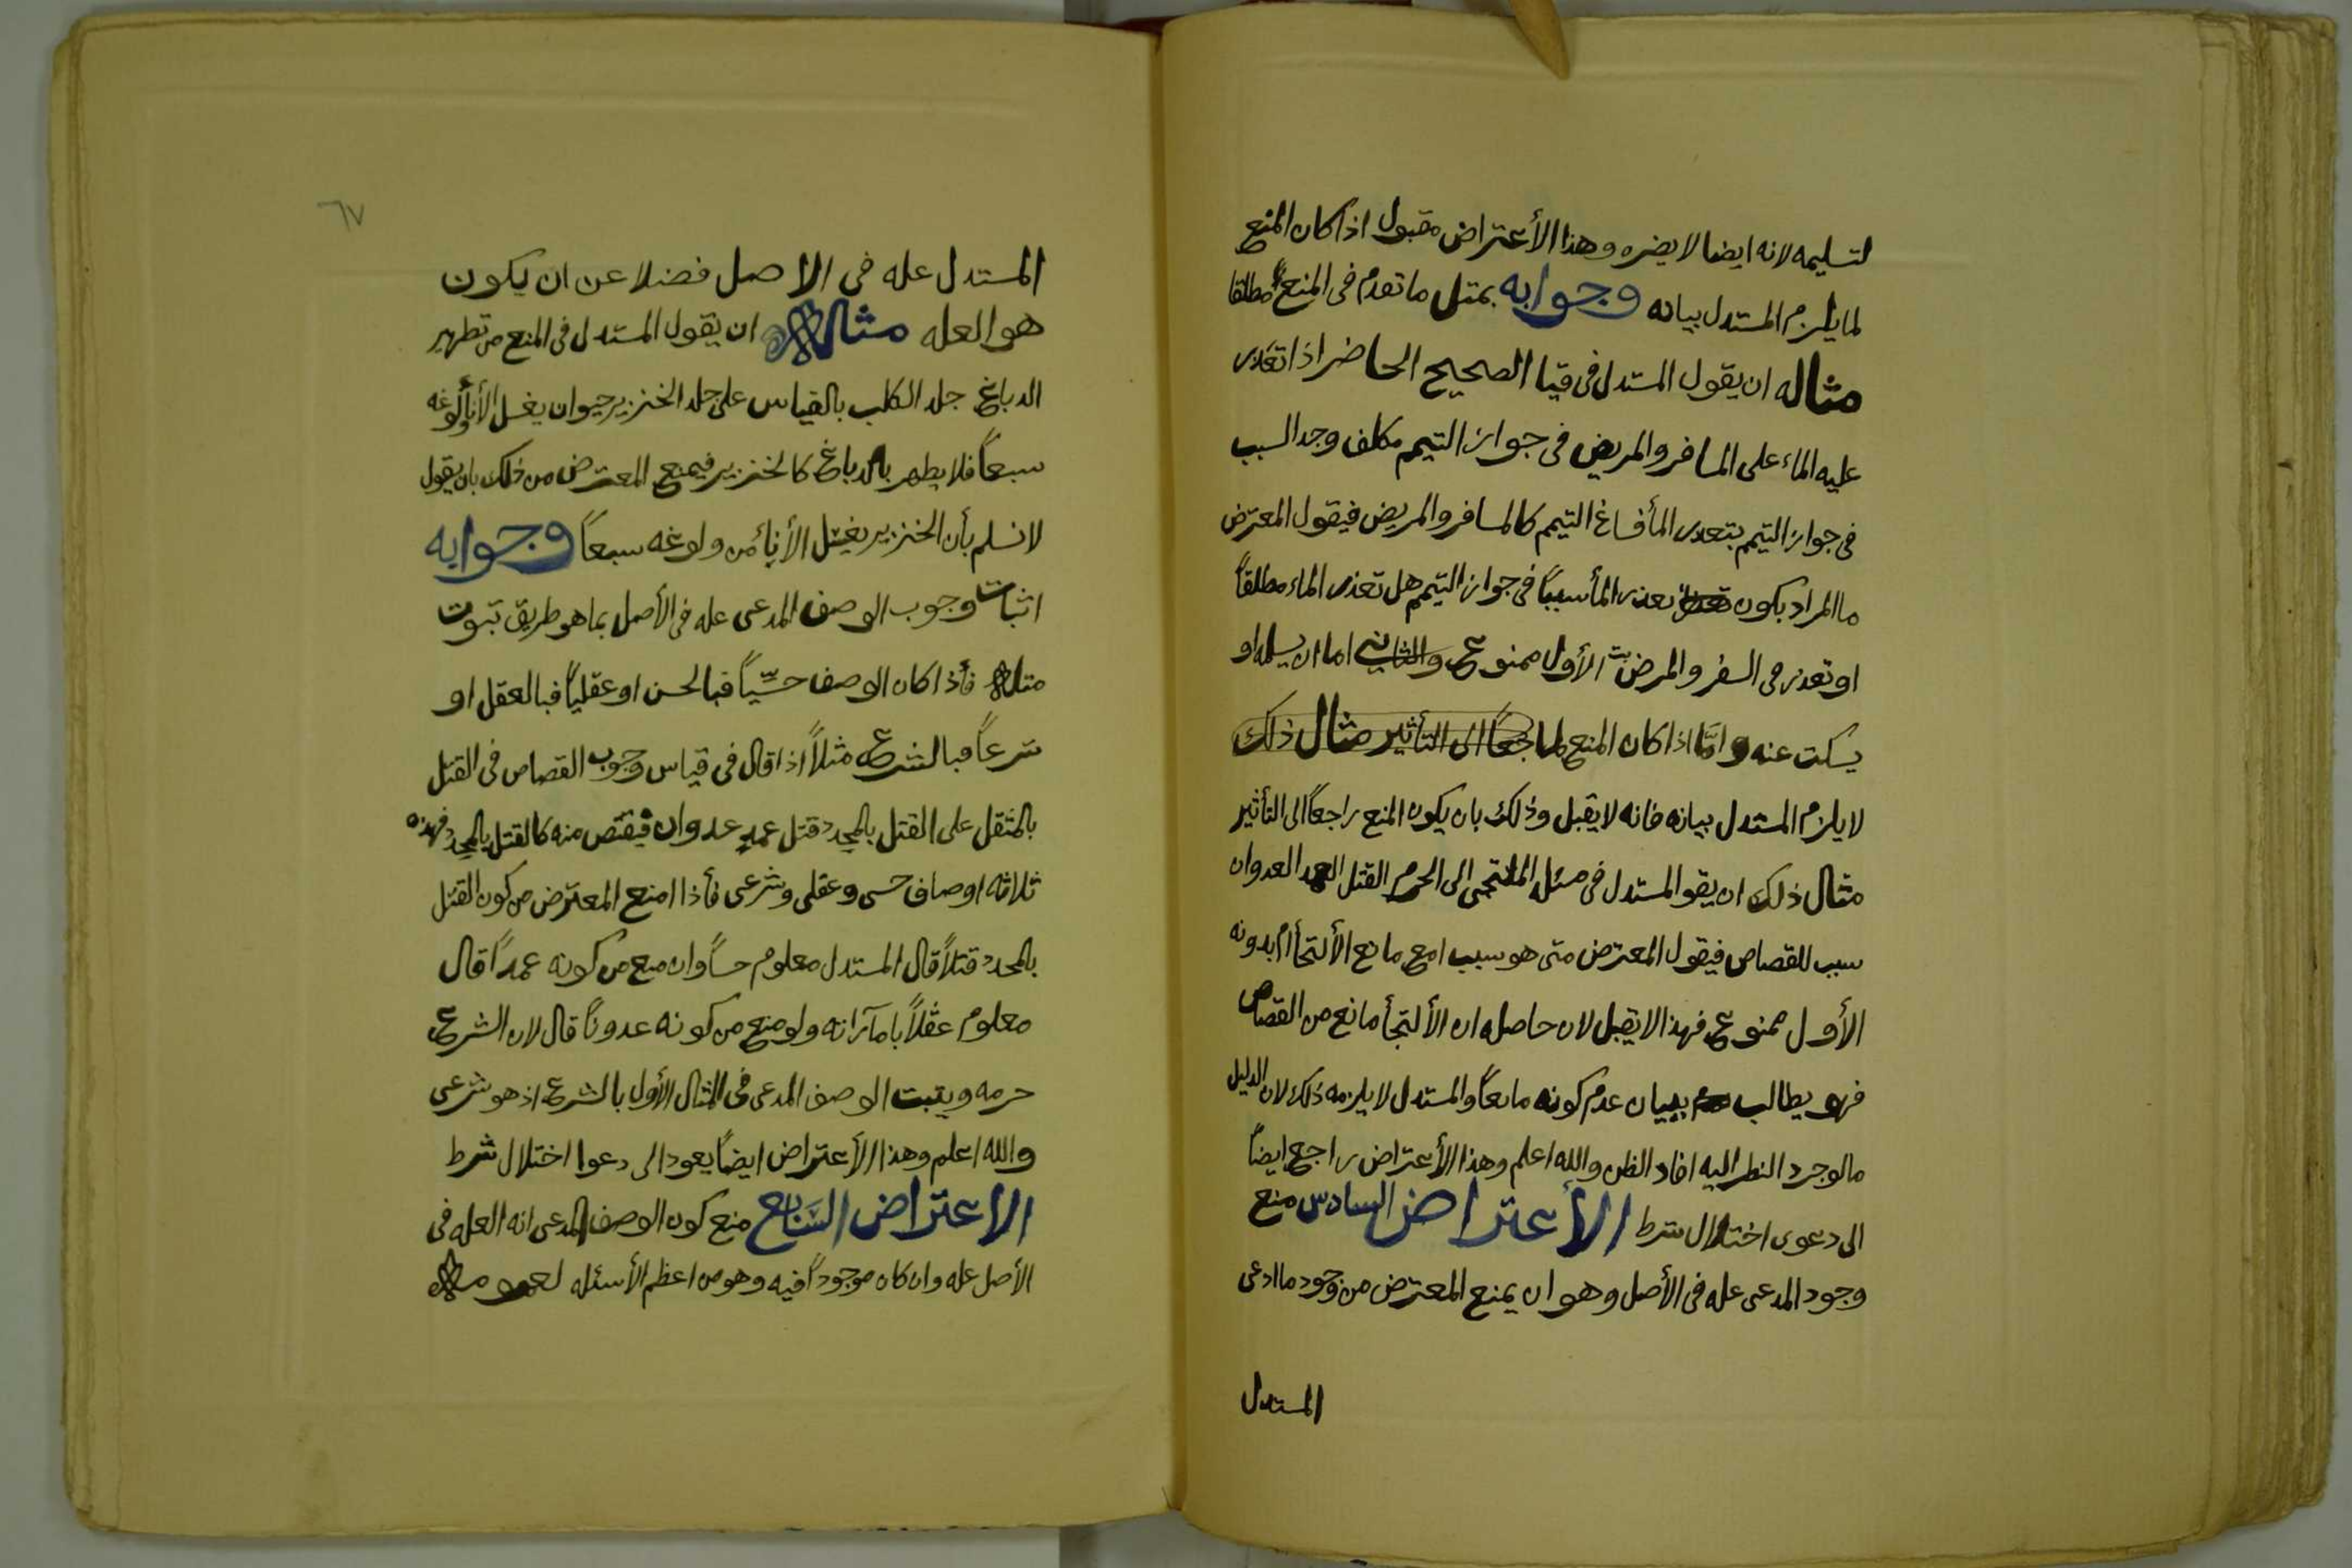 لتسليمه لانه ايضا لا يضره وهذا الأعتراض مقبول اذا كان المنع
لما يلزم المستدل بيانه وجوابه بمثل ما تقدم فى المنع مطلقا
مثاله ان يقول المستدل فى قيا الصحيح الحاضر اذا تعذر
عليه الماء على المسافر والمريض فى جواز التيمم مكلف وجد السبب
فى جواز التيمم بتعذر المأ فساغ التيمم كالمسافر والمريض فيقول المعترض
ما المراد بكون تعذر المأ سببًا فى جواز التيمم هل تعذر الماء مطلقاً
او تعذر فى السفر والمرض الأول ممنوع والثانى اما ان يسلمه او
يسكت عنه وامَّا اذا كان المنع راجعًا الى التأثير مثال ذلك
لا يلزم المستدل بيانه فانه لا يقبل وذلك بان يكون المنع راجعاً الى التأثير
مثال ذلك ان يقو المستدل فى مسئله الملتجى الى الحرم القتل العمد العدوان
سبب للقصاص فيقول المعترض متى هو سبب امع مانع الألتجأ ام بدونه
الأول ممنوع فهذا لا يقبل لان حاصله ان الألتجأ مانع من القصاص
فهو يطالب ببيان عدم كونه مانعاً والمستدل لا يلزمه ذلك لان الدليل
ما لو جرد النظر اليه افاد الظن والله اعلم وهذا الأعتراض راجع ايضاً
الى دعوى اختلال شرط الأعتراض السادس منع
وجود المدعى عله فى الأصل وهو ان يمنع المعترض من وجود ما ادعى
المستدل
٦٧
المستدل عله فى الاصل فضلا عن ان يكون
هو العله مثاله ان يقول المستدل فى المنع من تطهير
الدباغ جلد الكلب بالقياس على جلد الخنزير حيوان يغسل الأنأ لوغه
سبعاً فلا يطهر بالدباغ كالخنزير فيمنع المعترض من ذلك بان يقول
لا نسلم بأن الخنزير يغسل الأناء من ولوغه سبعاً وجوابه
اثبات وجوب الوصف المدعى عله فى الأصل بما هو طريق ثبوت
مثله فأذا كان الوصف حسِّياً فبالحس او عقلياً فبالعقل او
شرعاً فبالشرع مثلاً اذا قال فى قياس وجوب القصاص فى القتل
بالمثقل على القتل بالمحدد قتل عمد عدوان فيقتص منه كالقتل بالمحدد فهذه
ثلاثه اوصاف حسى وعقلى وشرعى فأذا امنع المعترض من كون القتل
بالمحدد قتلاً قال المستدل معلوم حساً وان منع من كونه عمداً قال
معلوم عقلاً بامآراته ولو منع من كونه عدوناً قال لان الشرع
حرمه ويثبت الوصف المدعى فى المثال الأول بالشرع اذ هو شرعى
والله اعلم وهذا الأعتراض ايضاً يعود الى دعوا اختلال شرط
الاعتراض السَّابع منع كون الوصف المدعى انه العله فى
الأصل عله وان كان موجوداً فيه وهو من اعظم الأسئله لعمومه